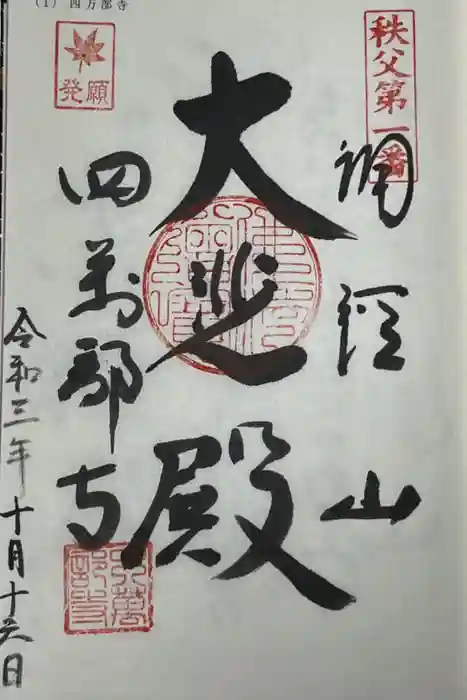 (1) 四万部寺
秩父第一番
誦経山
大悲殿
発願
四萬部寺
令和三年十月十六日